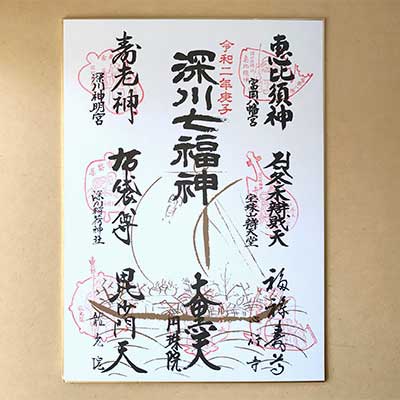 恵比須神
富岡八幡宮
冬木弁財天
福禄寿尊
心行寺
令和二年庚子
深川七福神
大黒天
円珠院
寿老神
深川神明宮
布袋尊
深川稲荷神社
毘沙門天
龍光院